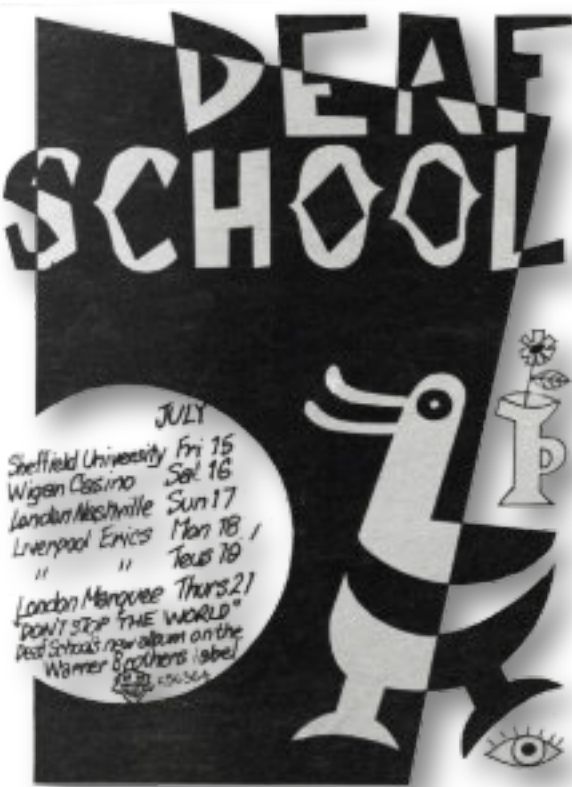 DEAF
SCHOOL
JULY
Sheffield University Fri 15
Wigan Casino Sat 16
London Nashville Sun 17
Liverpool Erics Mon 18
" " Teus 19
London Marquee Thurs 21
"DON'T STOP THE WORLD"
Deaf School's new album on the
Warner Brothers label